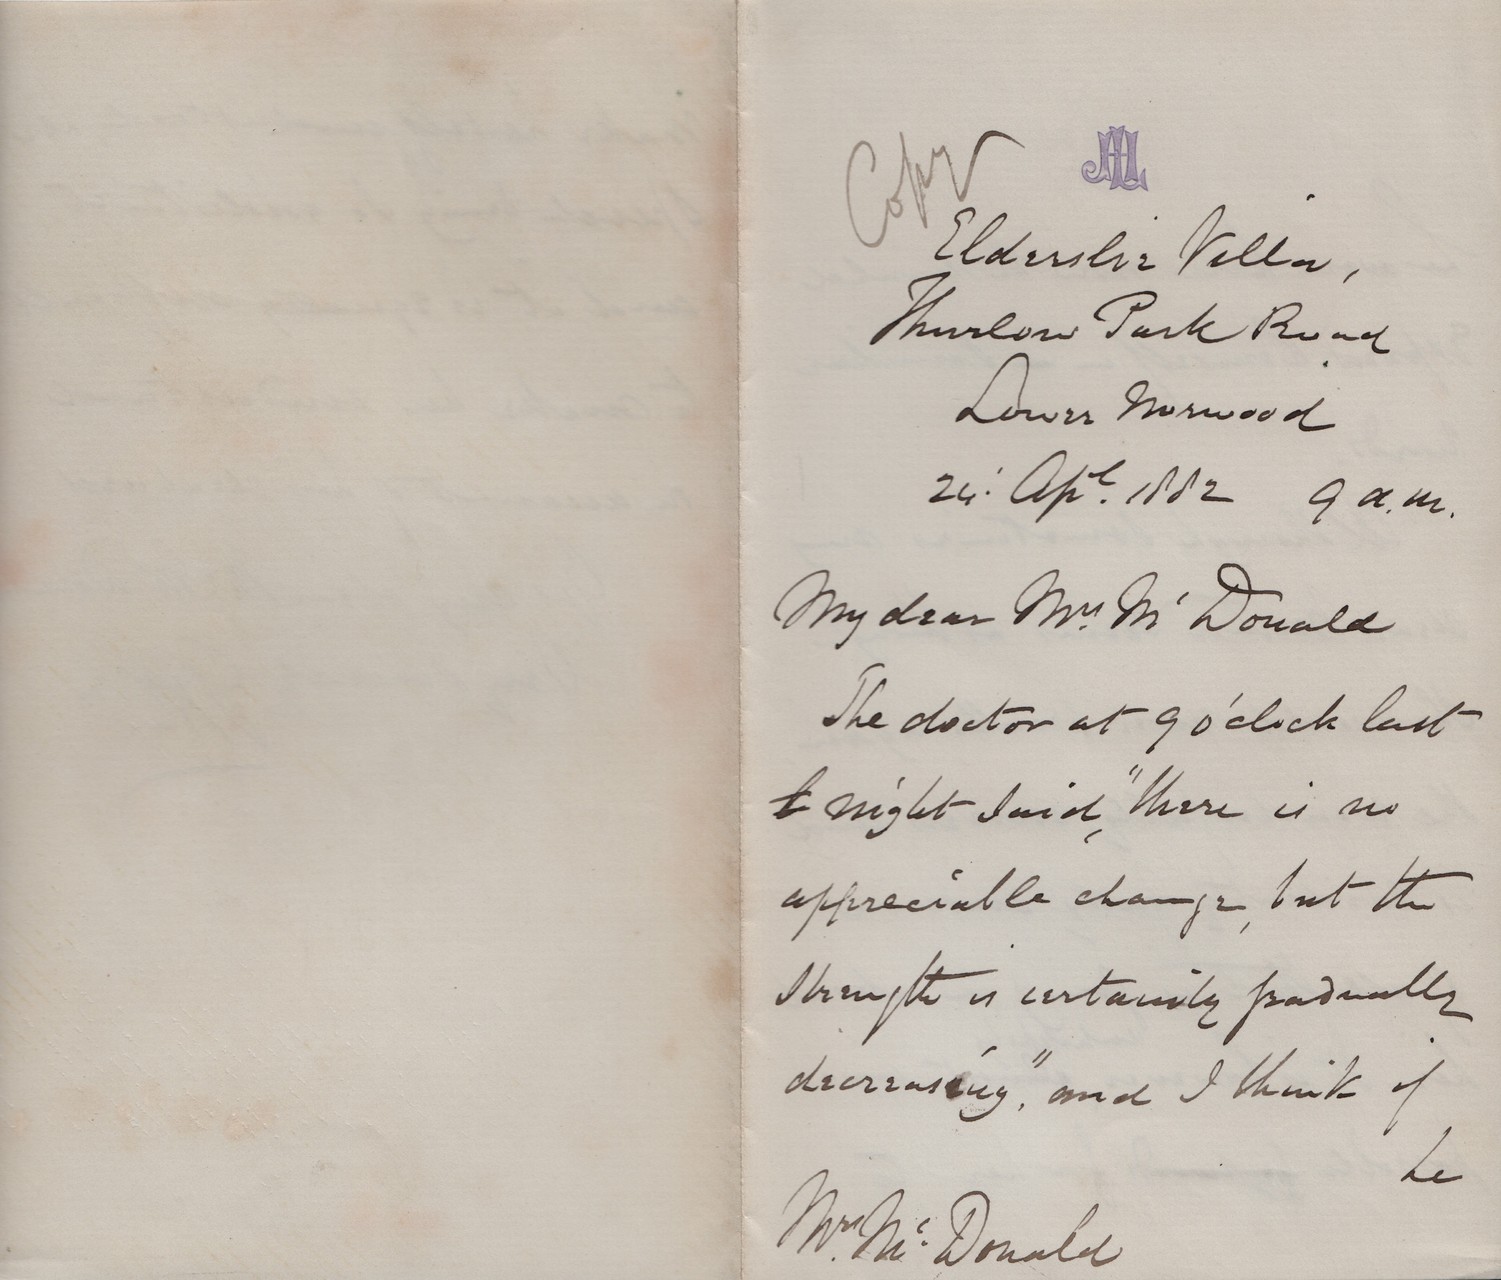 Copy
Elderslie Villa,
Thurlow Park Road
Lower Norwood
24. Apl. 1882 9 a.m.
My dear Mrs. Mc Donald
The doctor at 9 o'clock last
night said, "there is no
appreciable change, but the
strength is certainly gradually
decreasing", and I think if
he
Mrs. Mc. Donald